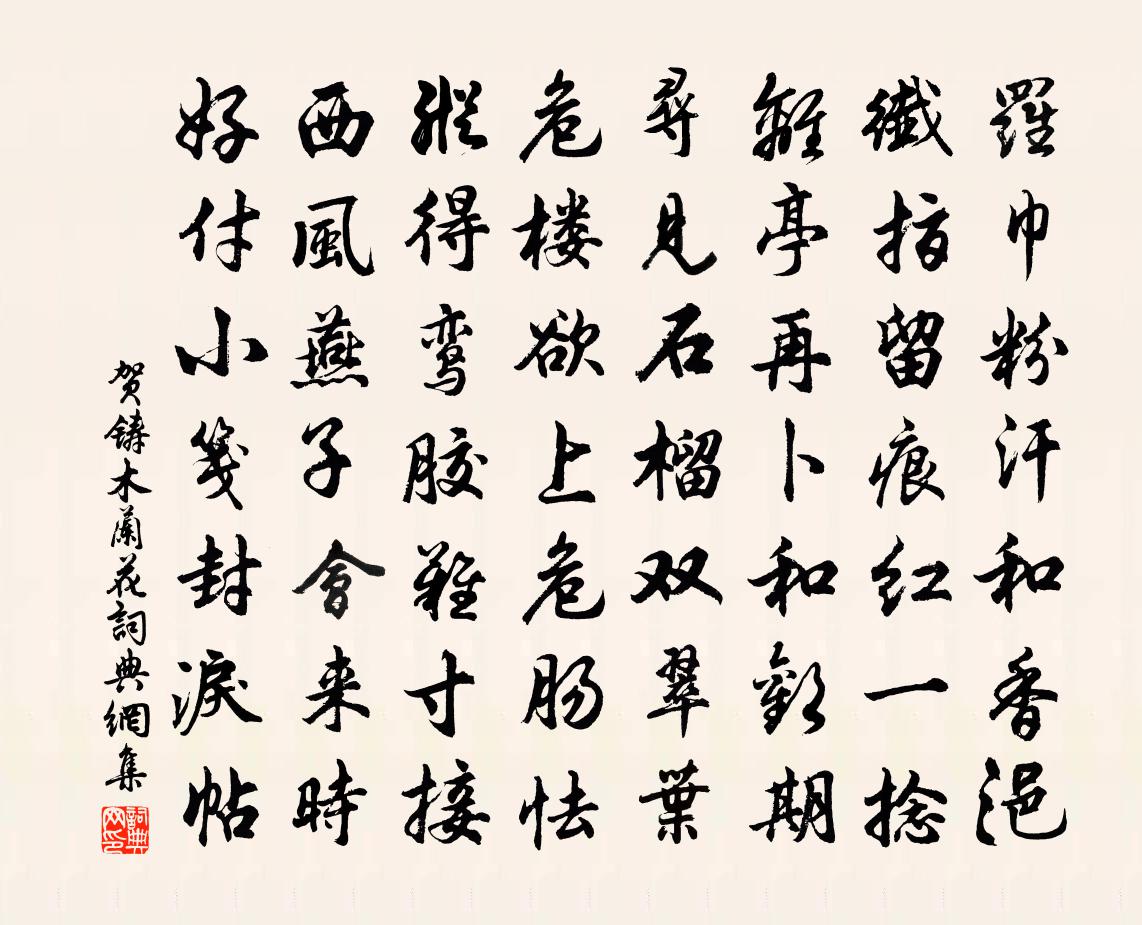 羅巾粉汗和香浥
纖指留痕红一捻
離亭再卜和歡期
尋見石榴双翠葉
危楼欲上危肠怯
縱得鸾胶難寸接
西風燕子會来時
好付小笺封淚帖
贺鑄木蘭花詞典網集
詞典网印